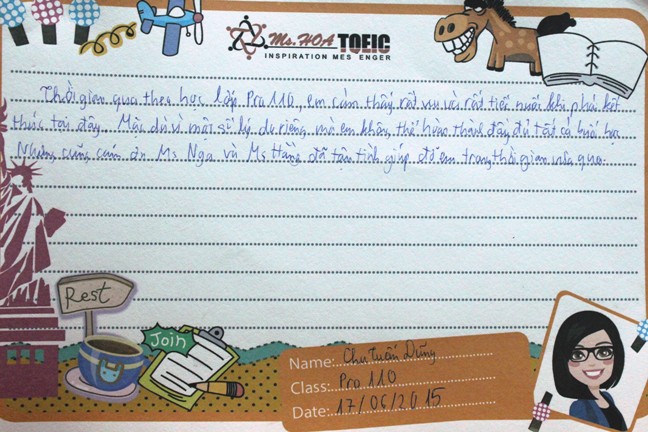 Ms.HOA TOEIC
INSPIRATION MES ENGER
Thời gian qua theo học lớp Pro 110, em cảm thấy rất vui và rất tiếc nuối khi phải kết
thúc tại đây. Mặc dù vì một số lý do riêng mà em không thể hoàn thành đầy đủ tất cả buổi học
Nhưng cũng cảm ơn Ms Nga và Ms Hằng đã tận tình giúp đỡ em trong thời gian vừa qua.
Rest
Join
Name: Chu Tuấn Dũng
Class: Pro 110
Date: 17/06/2015